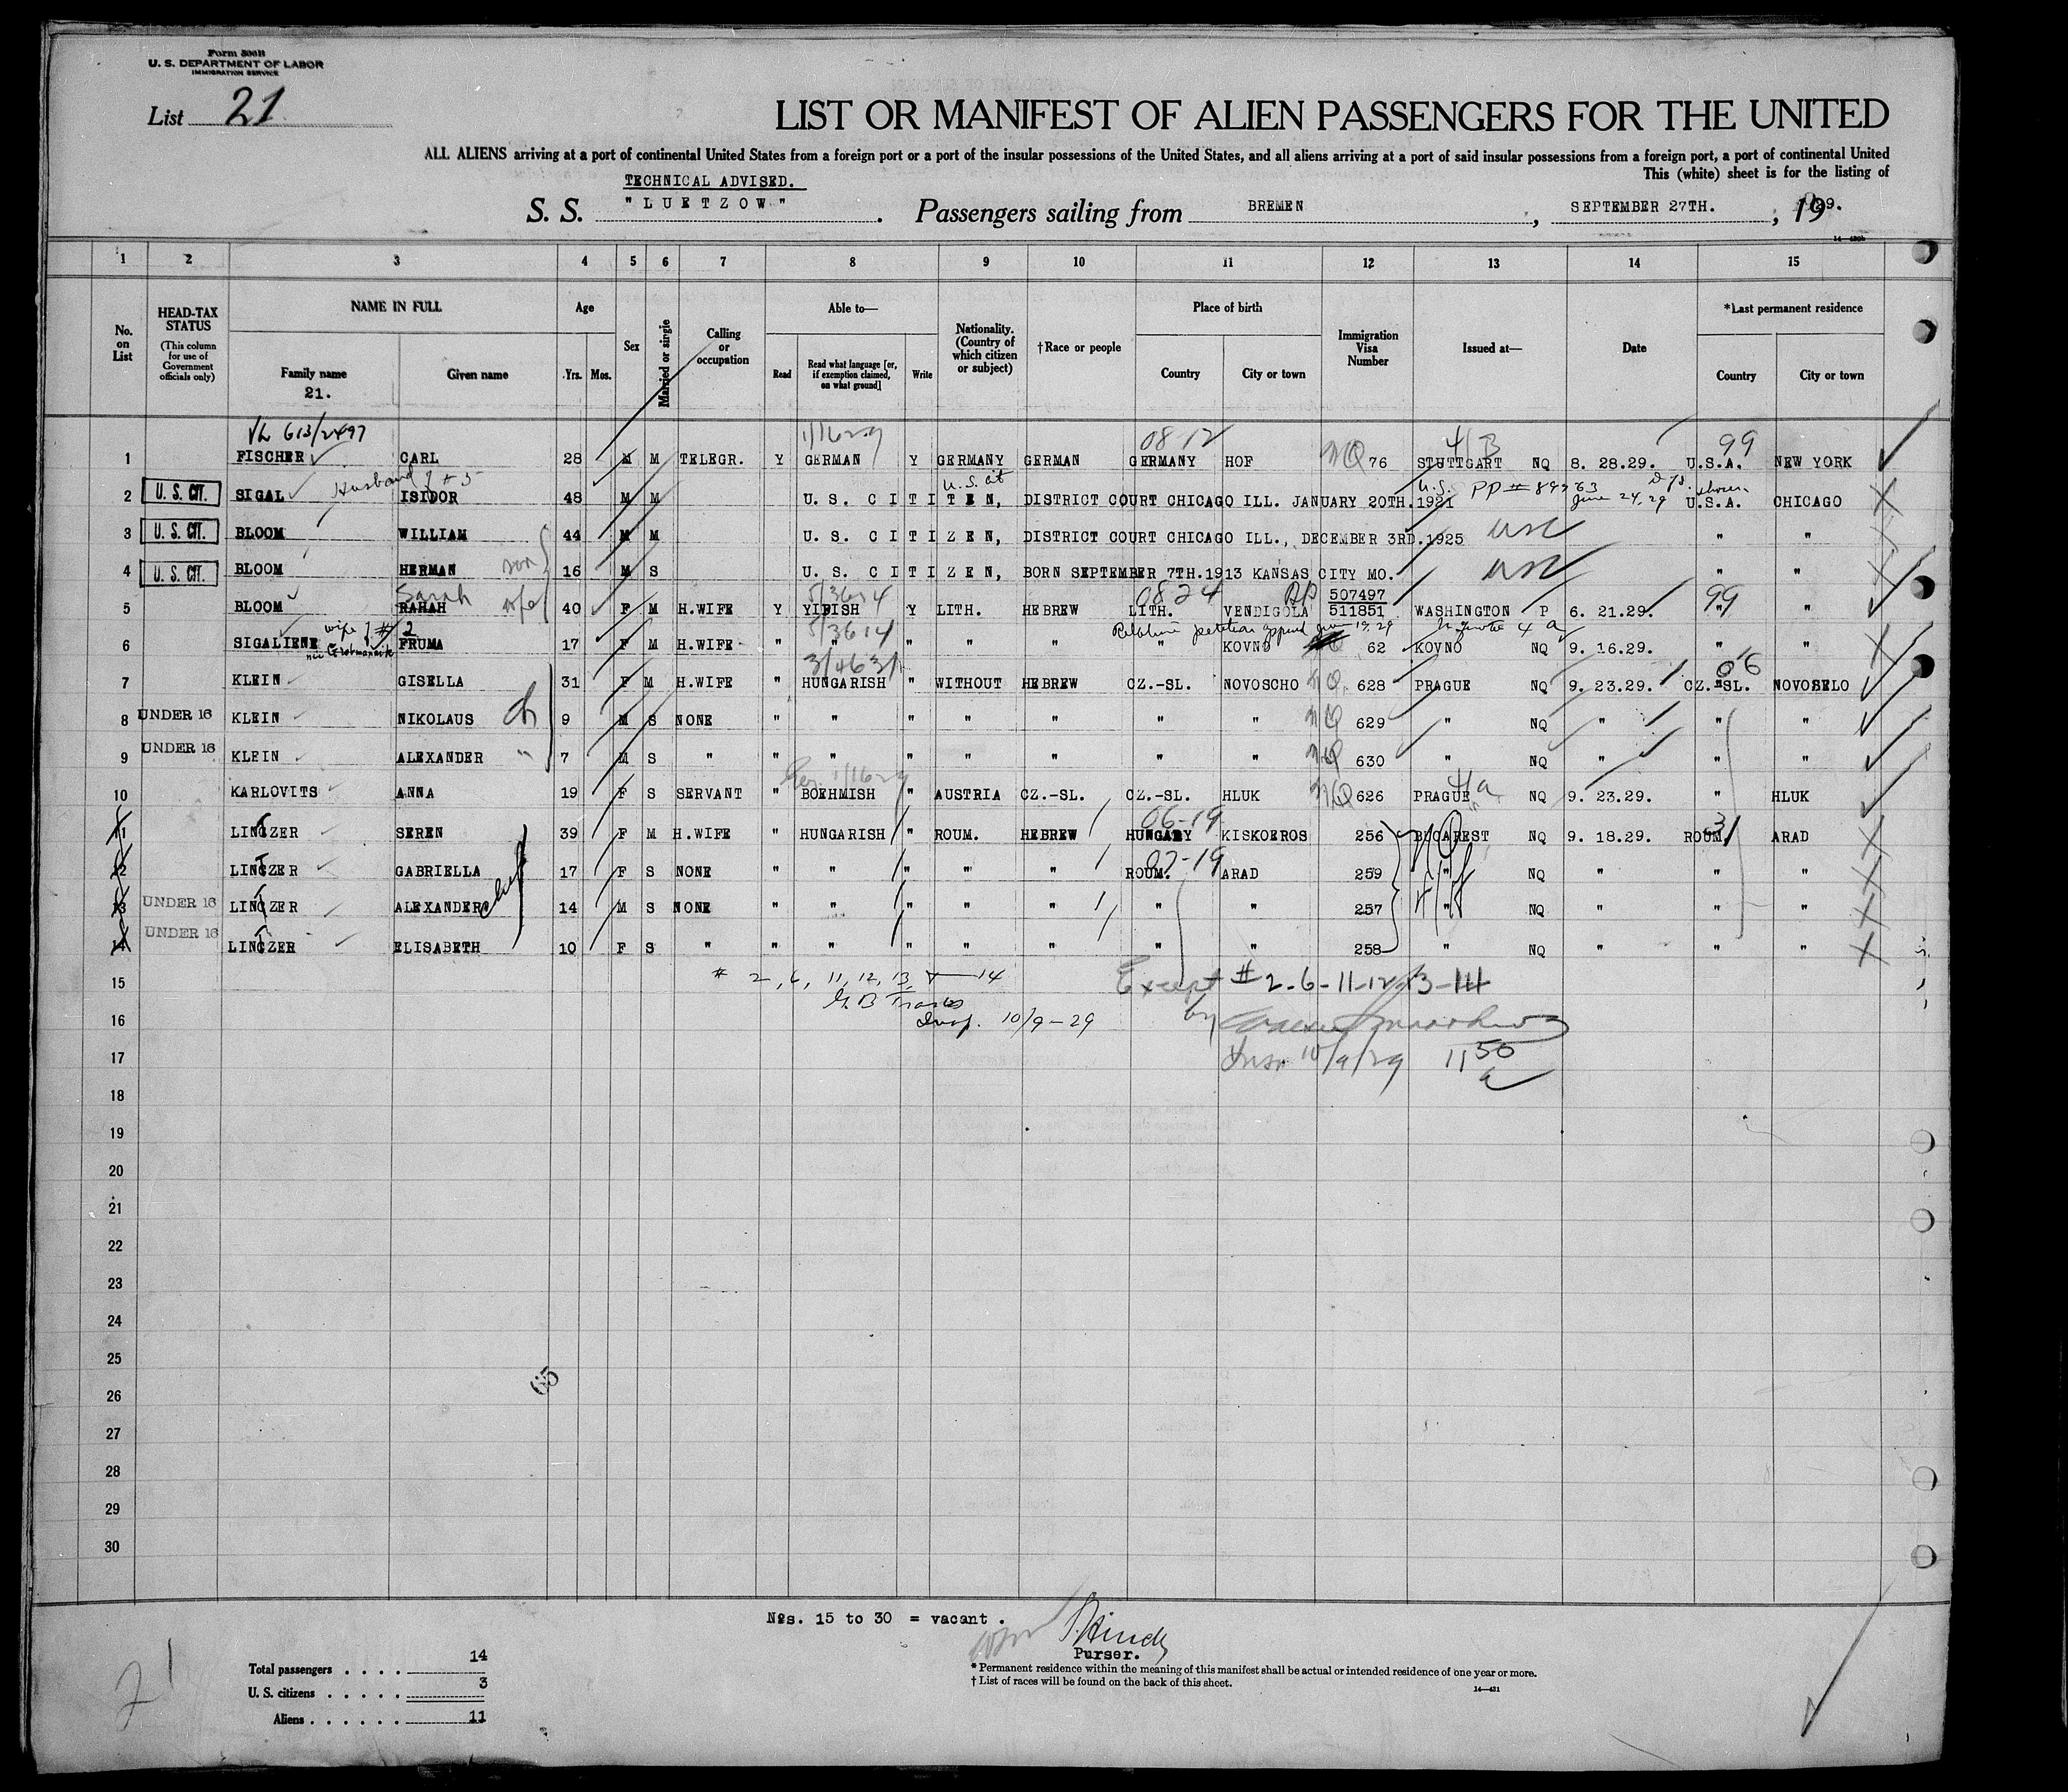 Form 500B
U. S. DEPARTMENT OF LABOR
IMMIGRATION SERVICE
List 21
LIST OR MANIFEST OF ALIEN PASSENGERS FOR THE UNITED
ALL ALIENS arriving at a port of continental United States from a foreign port or a port of the insular possessions of the United States, and all aliens arriving at a port of said insular possessions from a foreign port, a port of continental United
This (white) sheet is for the listing of
TECHNICAL ADVISED.
S. S. "LUETZOW". Passengers sailing from BREMEN, SEPTEMBER 27TH., 1929.
1 2 3 4 5 6 7 8 9 10 11 12 13 14 15
No. on List
HEAD-TAX STATUS (This column for use of Government officials only)
NAME IN FULL Family name Given name
21.
Age Yrs. Mos.
Sex
Married or single
Calling or occupation
Able to— Read Read what language [or, if exemption claimed, on what ground] Write
Nationality. (Country of which citizen or subject)
†Race or people
Place of birth Country City or town
Immigration Visa Number
Issued at—
Date
*Last permanent residence Country City or town
613/2497 1/1629 0812 4/B 99
1 FISCHER CARL 28 M M TELEGR. Y GERMAN Y GERMANY GERMAN GERMANY HOF NQ 76 STUTTGART NQ 8. 28.29. U.S.A. NEW YORK
Husband of # 5 U.S. cit U.S. PP # 89963 June 24, 29
2 U. S. CIT. SIGAL ISIDOR 48 M M U. S. CITITEN, DISTRICT COURT CHICAGO ILL. JANUARY 20TH.1921 U.S.A. CHICAGO
3 U. S. CIT. BLOOM WILLIAM 44 M M U. S. CITIZEN, DISTRICT COURT CHICAGO ILL., DECEMBER 3RD.1925 USC " "
4 U. S. CIT. BLOOM HERMAN son 16 M S U. S. CITIZEN, BORN SEPTEMBER 7TH.1913 KANSAS CITY MO. USC " "
Sarah wife 5/3614 0824 RP 507497 99
5 BLOOM RAHAH 40 F M H.WIFE Y YIDISH Y LITH. HEBREW LITH. VENDIGOLA 511851 WASHINGTON P 6. 21.29. " "
wife of # 2 5/3614 Relative petition appvd June 19, 29 4 a
6 SIGALIENE FRUMA 17 F M H.WIFE " " " " " " KOVNO 62 KOVNO NQ 9. 16.29. " "
3/463/ 06
7 KLEIN GISELLA 31 F M H.WIFE " HUNGARISH " WITHOUT HEBREW CZ.-SL. NOVOSCHO NQ 628 PRAGUE NQ 9. 23.29. CZ.-SL. NOVOSELO
8 UNDER 16 KLEIN NIKOLAUS ch 9 M S NONE " " " " " " " NQ 629 " NQ " " "
9 UNDER 16 KLEIN ALEXANDER " 7 M S " " " " " " " " NQ 630 " NQ " " "
Ger. 1/1629 4/a
10 KARLOVITS ANNA 19 F S SERVANT " BOEHMISH " AUSTRIA CZ.-SL. CZ.-SL. HLUK NQ 626 PRAGUE NQ 9. 23.29. " HLUK
06-19 31
11 LINCZER SEREN 39 F M H.WIFE " HUNGARISH " ROUM. HEBREW HUNGARY KISKOEROS 256 BUCAREST NQ 9. 18.29. ROUM. ARAD
07-19
12 LINCZER GABRIELLA 17 F S NONE " " " " " ROUM. ARAD 259 " NQ " " "
13 UNDER 16 LINCZER ALEXANDER 14 M S NONE " " " " " " " 257 " NQ " " "
14 UNDER 16 LINCZER ELISABETH 10 F S " " " " " " " " 258 " NQ " " "
15 # 2, 6, 11, 12, 13, & 14 Except # 2-6-11-12-13-14
16 Insp. 10/9-29 by
17 Insp 10/9/29 11 50 a
18
19
20
21
22
23
24
25
26 65
27
28
29
30
Nos. 15 to 30 = vacant.
Purser.
21
Total passengers 14
U. S. citizens 3
Aliens 11
* Permanent residence within the meaning of this manifest shall be actual or intended residence of one year or more.
† List of races will be found on the back of this sheet.
14—431